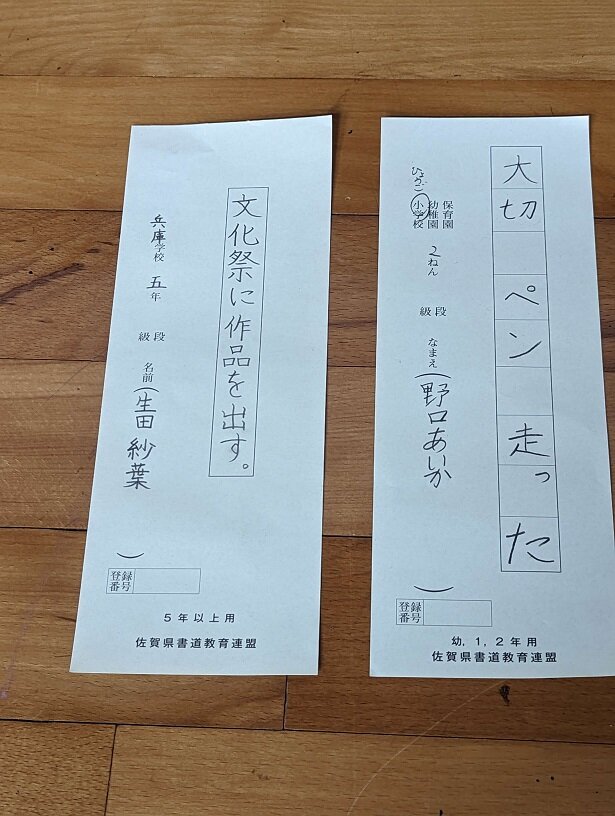 大切 ペン 走った
保育園
幼稚園
ひょうご 小学校 2ねん
段
級
なまえ(野口あいか)
登録
番号
幼,1,2年用
佐賀県書道教育連盟
文化祭に作品を出す。
兵庫学校 五年
段
級
名前(生田 紗葉)
登録
番号
5年以上用
佐賀県書道教育連盟